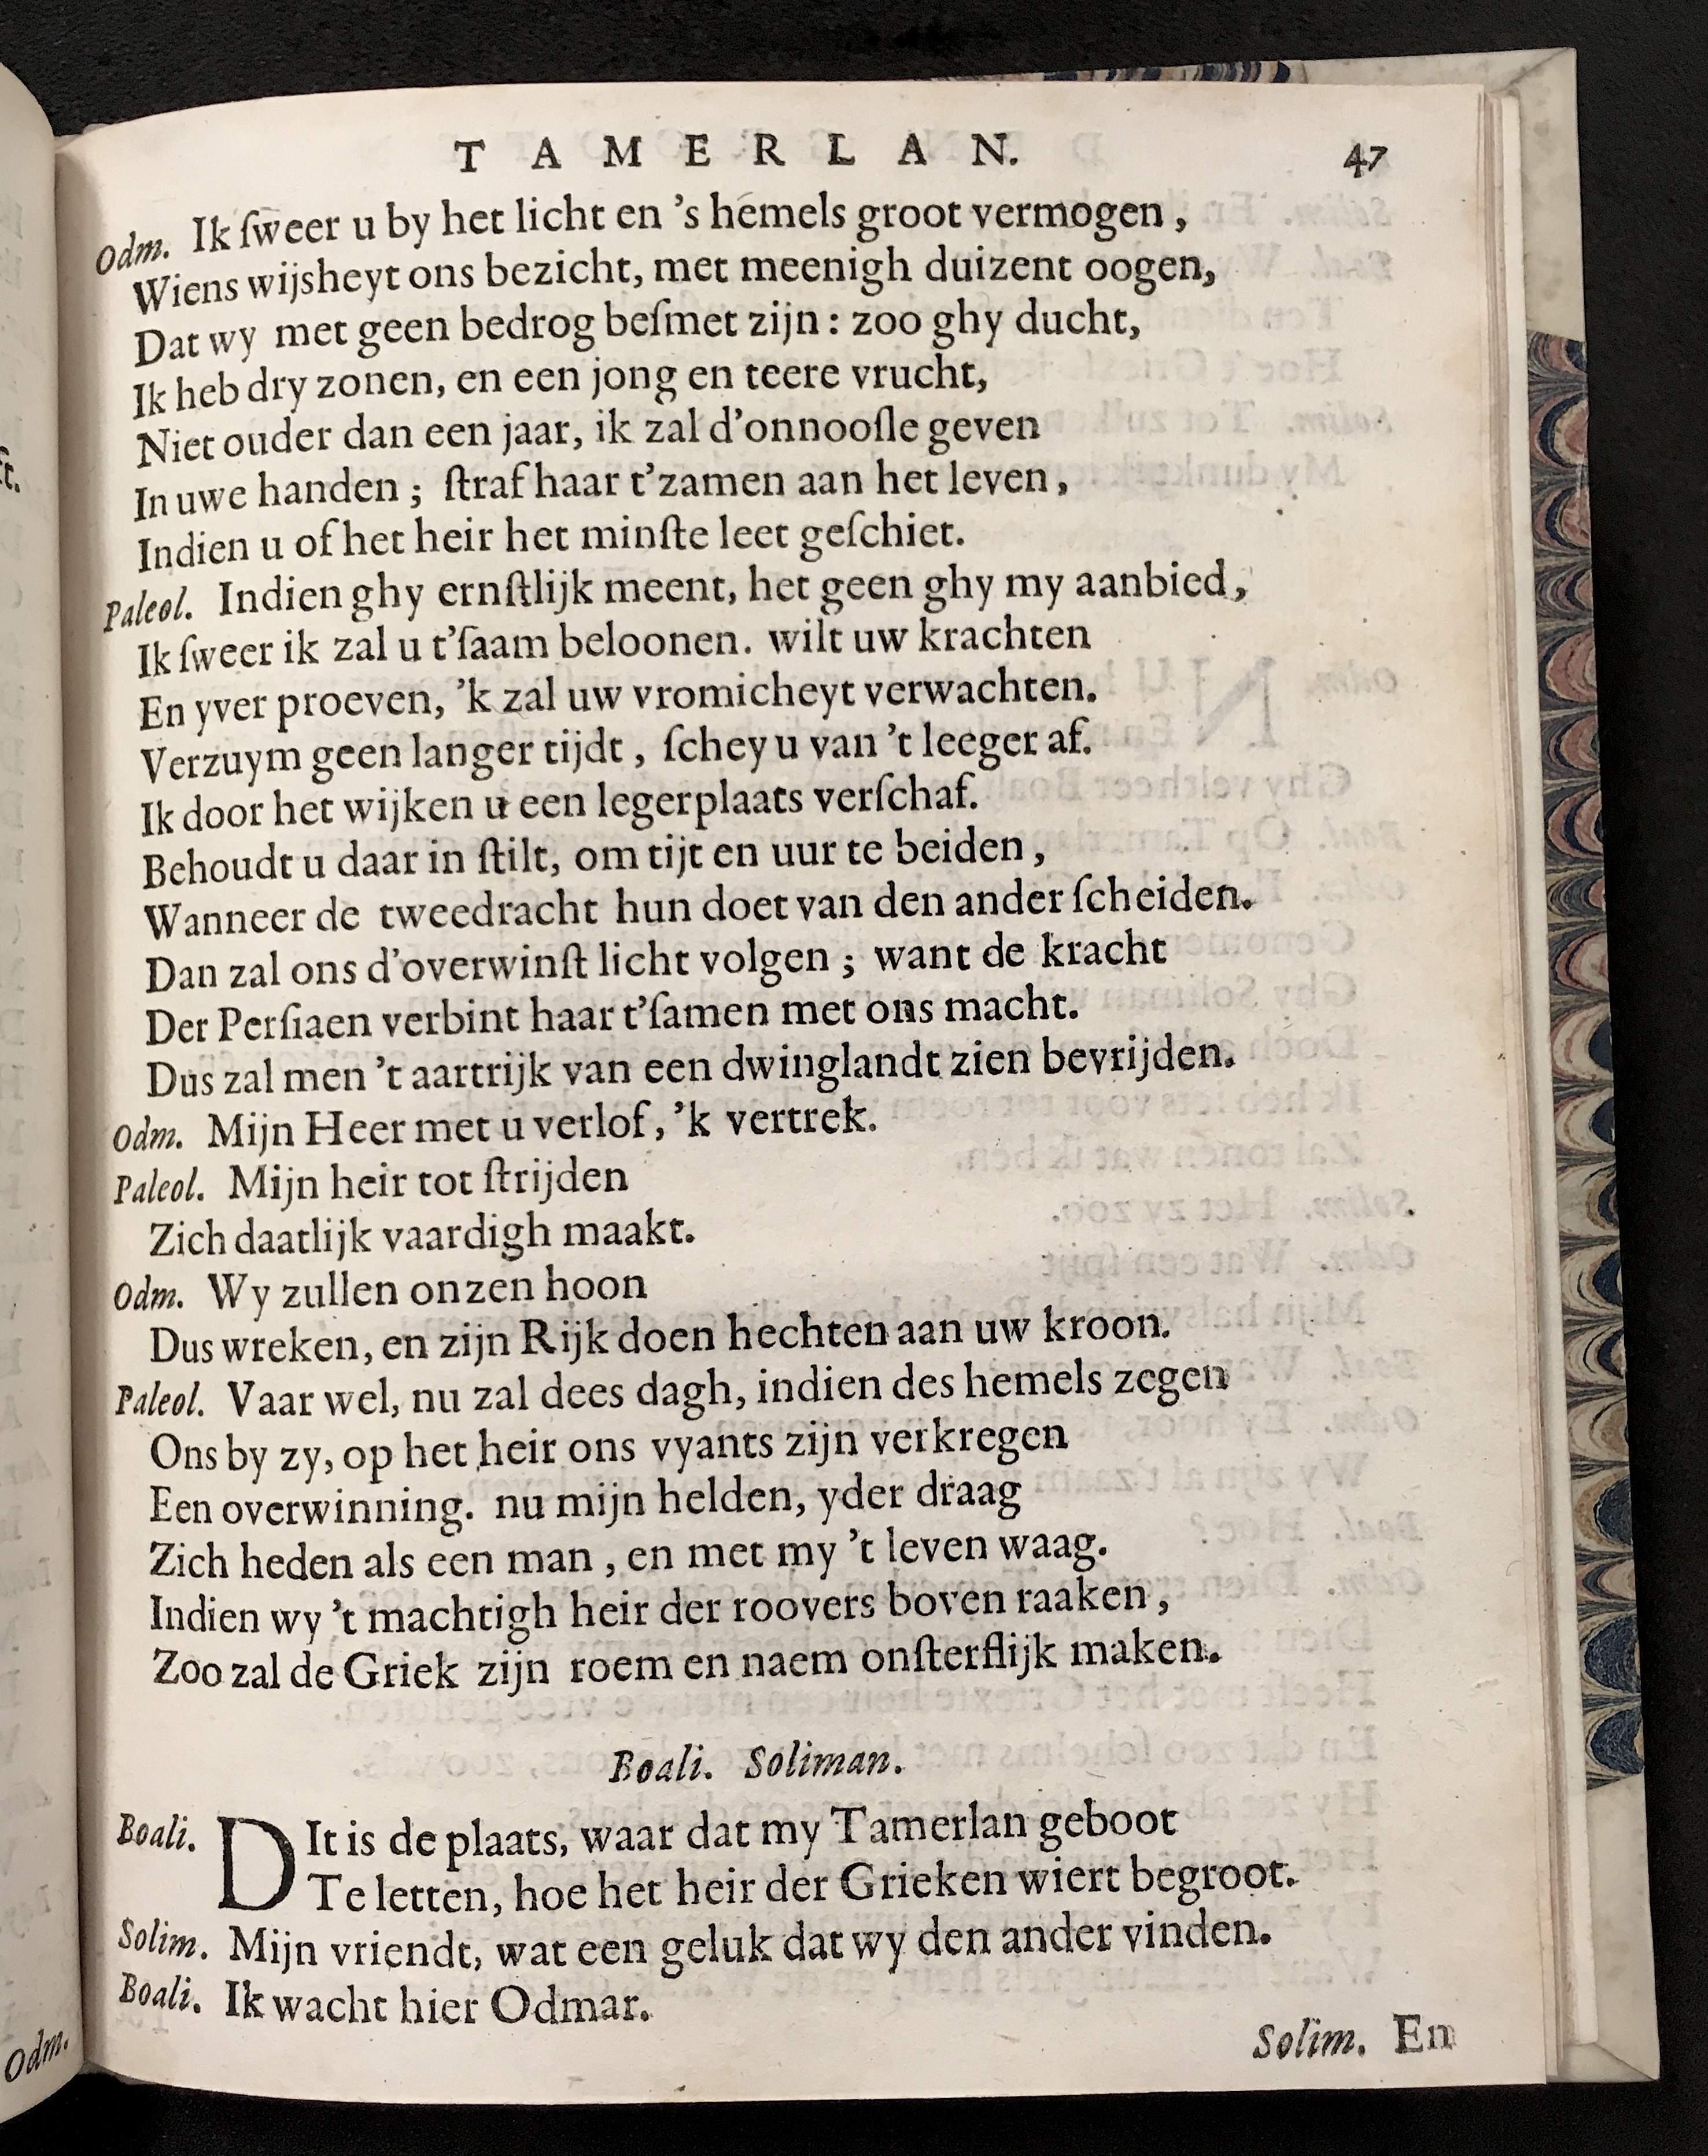 TAMERLAN. 47
Odm. Ik ſweer u by het licht en 's hemels groot vermogen,
Wiens wijsheyt ons bezicht, met meenigh duizent oogen,
Dat wy met geen bedrog beſmet zijn: zoo ghy ducht,
Ik heb dry zonen, en een jong en teere vrucht,
Niet ouder dan een jaar, ik zal d'onnooſle geven
In uwe handen; ſtraf haar t'zamen aan het leven,
Indien u of het heir het minſte leet geſchiet.
Paleol. Indien ghy ernſtlijk meent, het geen ghy my aanbied,
Ik ſweer ik zal u t'ſaam beloonen. wilt uw krachten
En yver proeven, 'k zal uw vromicheyt verwachten.
Verzuym geen langer tijdt, ſchey u van 't leeger af.
Ik door het wijken u een legerplaats verſchaf.
Behoudt u daar in ſtilt, om tijt en uur te beiden,
Wanneer de tweedracht hun doet van den ander ſcheiden.
Dan zal ons d'overwinſt licht volgen; want de kracht
Der Perſiaen verbint haar t'ſamen met ons macht.
Dus zal men 't aartrijk van een dwinglandt zien bevrijden.
Odm. Mijn Heer met u verlof, 'k vertrek.
Paleol. Mijn heir tot ſtrijden
Zich daatlijk vaardigh maakt.
Odm. Wy zullen onzen hoon
Dus wreken, en zijn Rijk doen hechten aan uw kroon.
Paleol. Vaar wel, nu zal dees dagh, indien des hemels zegen
Ons by zy, op het heir ons vyants zijn verkregen
Een overwinning. nu mijn helden, yder draag
Zich heden als een man, en met my 't leven waag.
Indien wy 't machtigh heir der roovers boven raaken,
Zoo zal de Griek zijn roem en naem onſterflijk maken.
Boali. Soliman.
Boali. DIt is de plaats, waar dat my Tamerlan geboot
Te letten, hoe het heir der Grieken wiert begroot.
Solim. Mijn vriendt, wat een geluk dat wy den ander vinden.
Boali. Ik wacht hier Odmar.
Solim. En
Odm.